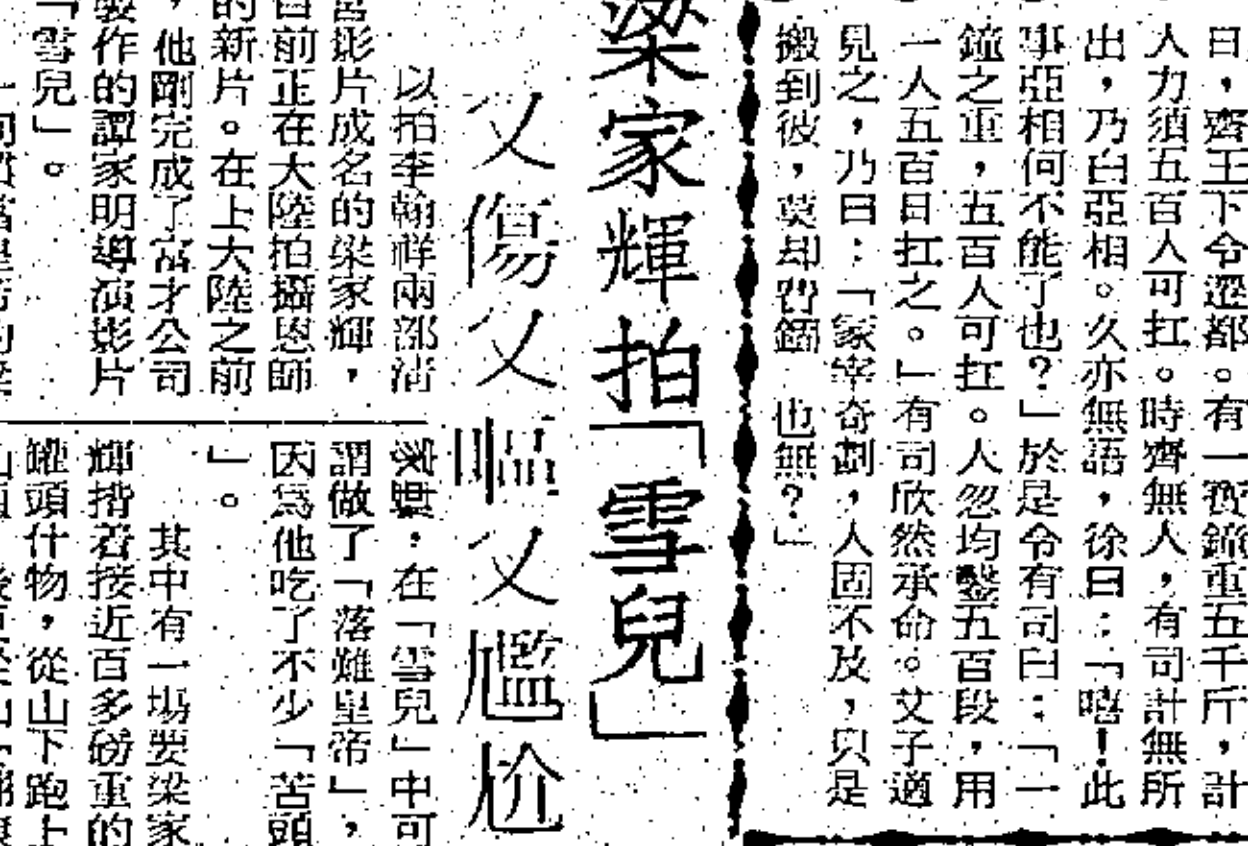 日，齊王下令遷都。有一寶鐘重五千斤，計
人力須五百人可扛。時齊無人，有司計無所
出，乃白亞相。久亦無語，徐曰：「嘻！此
事亞相何不能了也？」於是令有司曰：「一
鐘之重，五百人可扛。人忽均鑿五百段，用
一人五百日扛之。」有司欣然承命。艾子適
見之，乃曰：「冢宰奇劃，人固不及，只是
搬到彼，莫却費錮 也無？」
梁家輝拍「雪兒」
又傷又嘔又尷尬
以拍李翰祥兩部清
宮影片成名的梁家輝，
目前正在大陸拍攝恩師
的新片。在上大陸之前
，他剛完成了富才公司
製作的譚家明導演影片
「雪兒」。
，在「雪兒」中可
謂做了「落難皇帝」，
因為他吃了不少「苦頭
」。
其中有一場要梁家
輝揹着接近百多磅重的
罐頭什物，從山下跑上